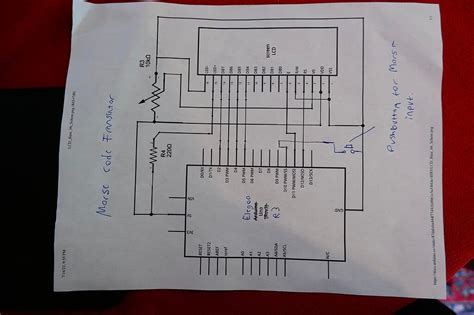 Morse code Translator
R3
10kΩ
R4
220Ω
LCD
screen
LED-
LED+
DB7
DB6
DB5
DB4
DB3
DB2
DB1
DB0
E
R/W
RS
V0
VDD
VSS
D0/RX
D1/TX
D2
D3 PWM
D4
D5 PWM
D6 PWM
D7
D8
D9 PWM
D10 PWM/SS
D11 PWM/MOSI
D12/MISO
D13/SCK
Elegoo
Uno
R3
VIN
5V
3V3
RESET
RESET2
AREF
ioref
A0
A1
A2
A3
A4/SDA
A5/SCL
N/C
GND
Pushbutton for Morse
input.